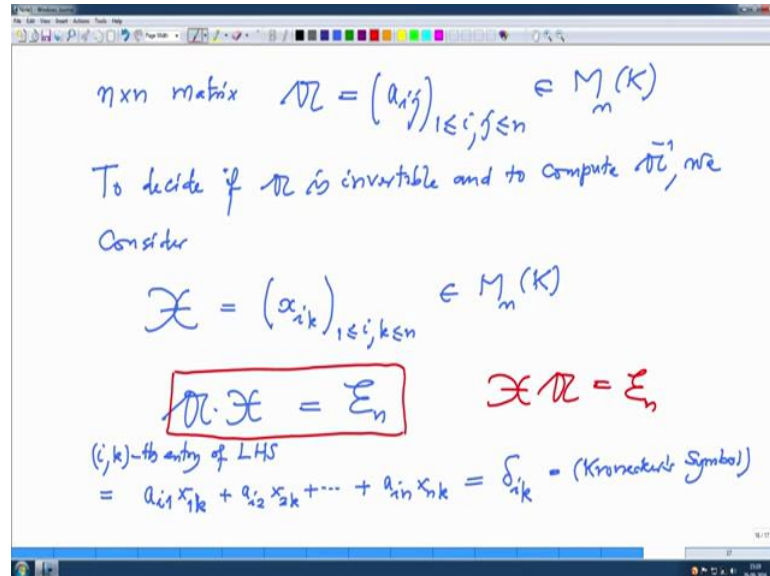 Note1 - Windows Journal
File Edit View Insert Actions Tools Help
Page Width
B
n×n matrix 𝔄 = (a_ij)_{1≤i,j≤n} ∈ M_n(K)
To decide if 𝔄 is invertible and to compute 𝔄^{-1}, we
Consider
𝔛 = (x_ik)_{1≤i,k≤n} ∈ M_n(K)
𝔄·𝔛 = ℰ_n 𝔛𝔄 = ℰ_n
(i,k)-th entry of LHS
= a_i1 x_1k + a_i2 x_2k + ··· + a_in x_nk = δ_ik - (Kronecker's Symbol)
17